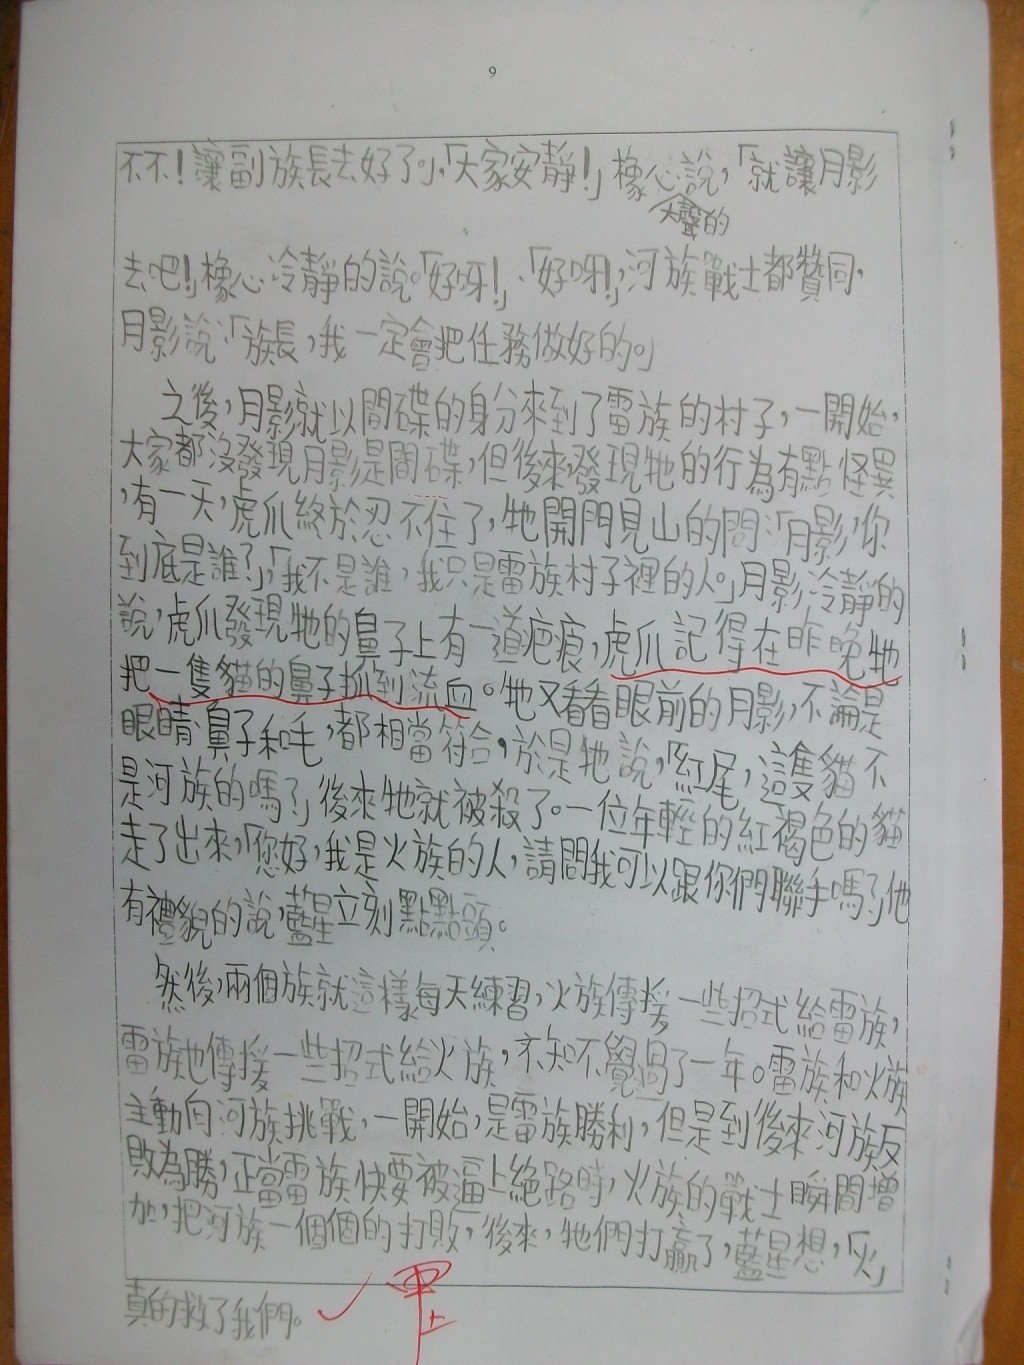 9
不不！讓副族長去好了」，「大家安靜！」橡心說，「就讓月影
大聲的
去吧！」橡心冷靜的說。「好呀！」、「好呀！」，河族戰士都贊同，
月影說：「族長，我一定會把任務做好的。」
之後，月影就以間碟的身分來到了雷族的村子，一開始，
大家都沒發現月影是間碟，但後來，發現牠的行為有點怪異
，有一天，虎爪終於忍不住了，牠開門見山的問：「月影，你
到底是誰？」，「我不是誰，我只是雷族村子裡的人。」月影冷靜的
說，虎爪發現牠的鼻子上有一道疤痕，虎爪記得在昨晚牠
把一隻貓的鼻子抓到流血。牠又看看眼前的月影，不論是
眼睛、鼻子和毛，都相當符合，於是牠說，「紅尾，這隻貓不
是河族的嗎？」後來牠就被殺了。一位年輕的紅褐色的貓
走了出來，「您好，我是火族的人，請問我可以跟你們聯手嗎？」他
有禮貌的說，藍星立刻點點頭。
然後，兩個族就這樣每天練習，火族傳授一些招式給雷族，
雷族也傳授一些招式給火族，不知不覺過了一年。雷族和火族
主動向河族挑戰，一開始，是雷族勝利，但是到後來河族反
敗為勝，正當雷族快要被逼上絕路時，火族的戰士瞬間增
加，把河族一個個的打敗，後來，牠們打贏了，藍星想，「火」
真的救了我們。